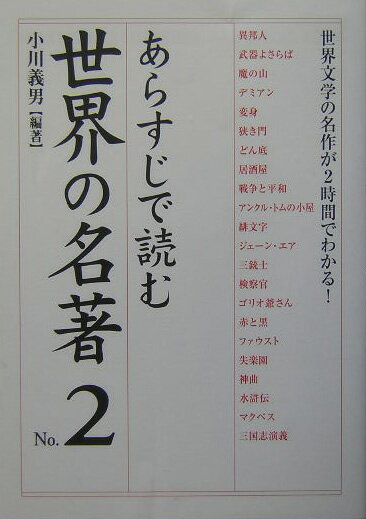 世界文学の名作が2時間でわかる!
異邦人
武器よさらば
魔の山
デミアン
変身
狭き門
どん底
居酒屋
戦争と平和
アンクル・トムの小屋
緋文字
ジェーン・エア
三銃士
検察官
ゴリオ爺さん
赤と黒
ファウスト
失楽園
神曲
水滸伝
マクベス
三国志演義
あらすじで読む
世界の名著 No.2
小川義男【編著】